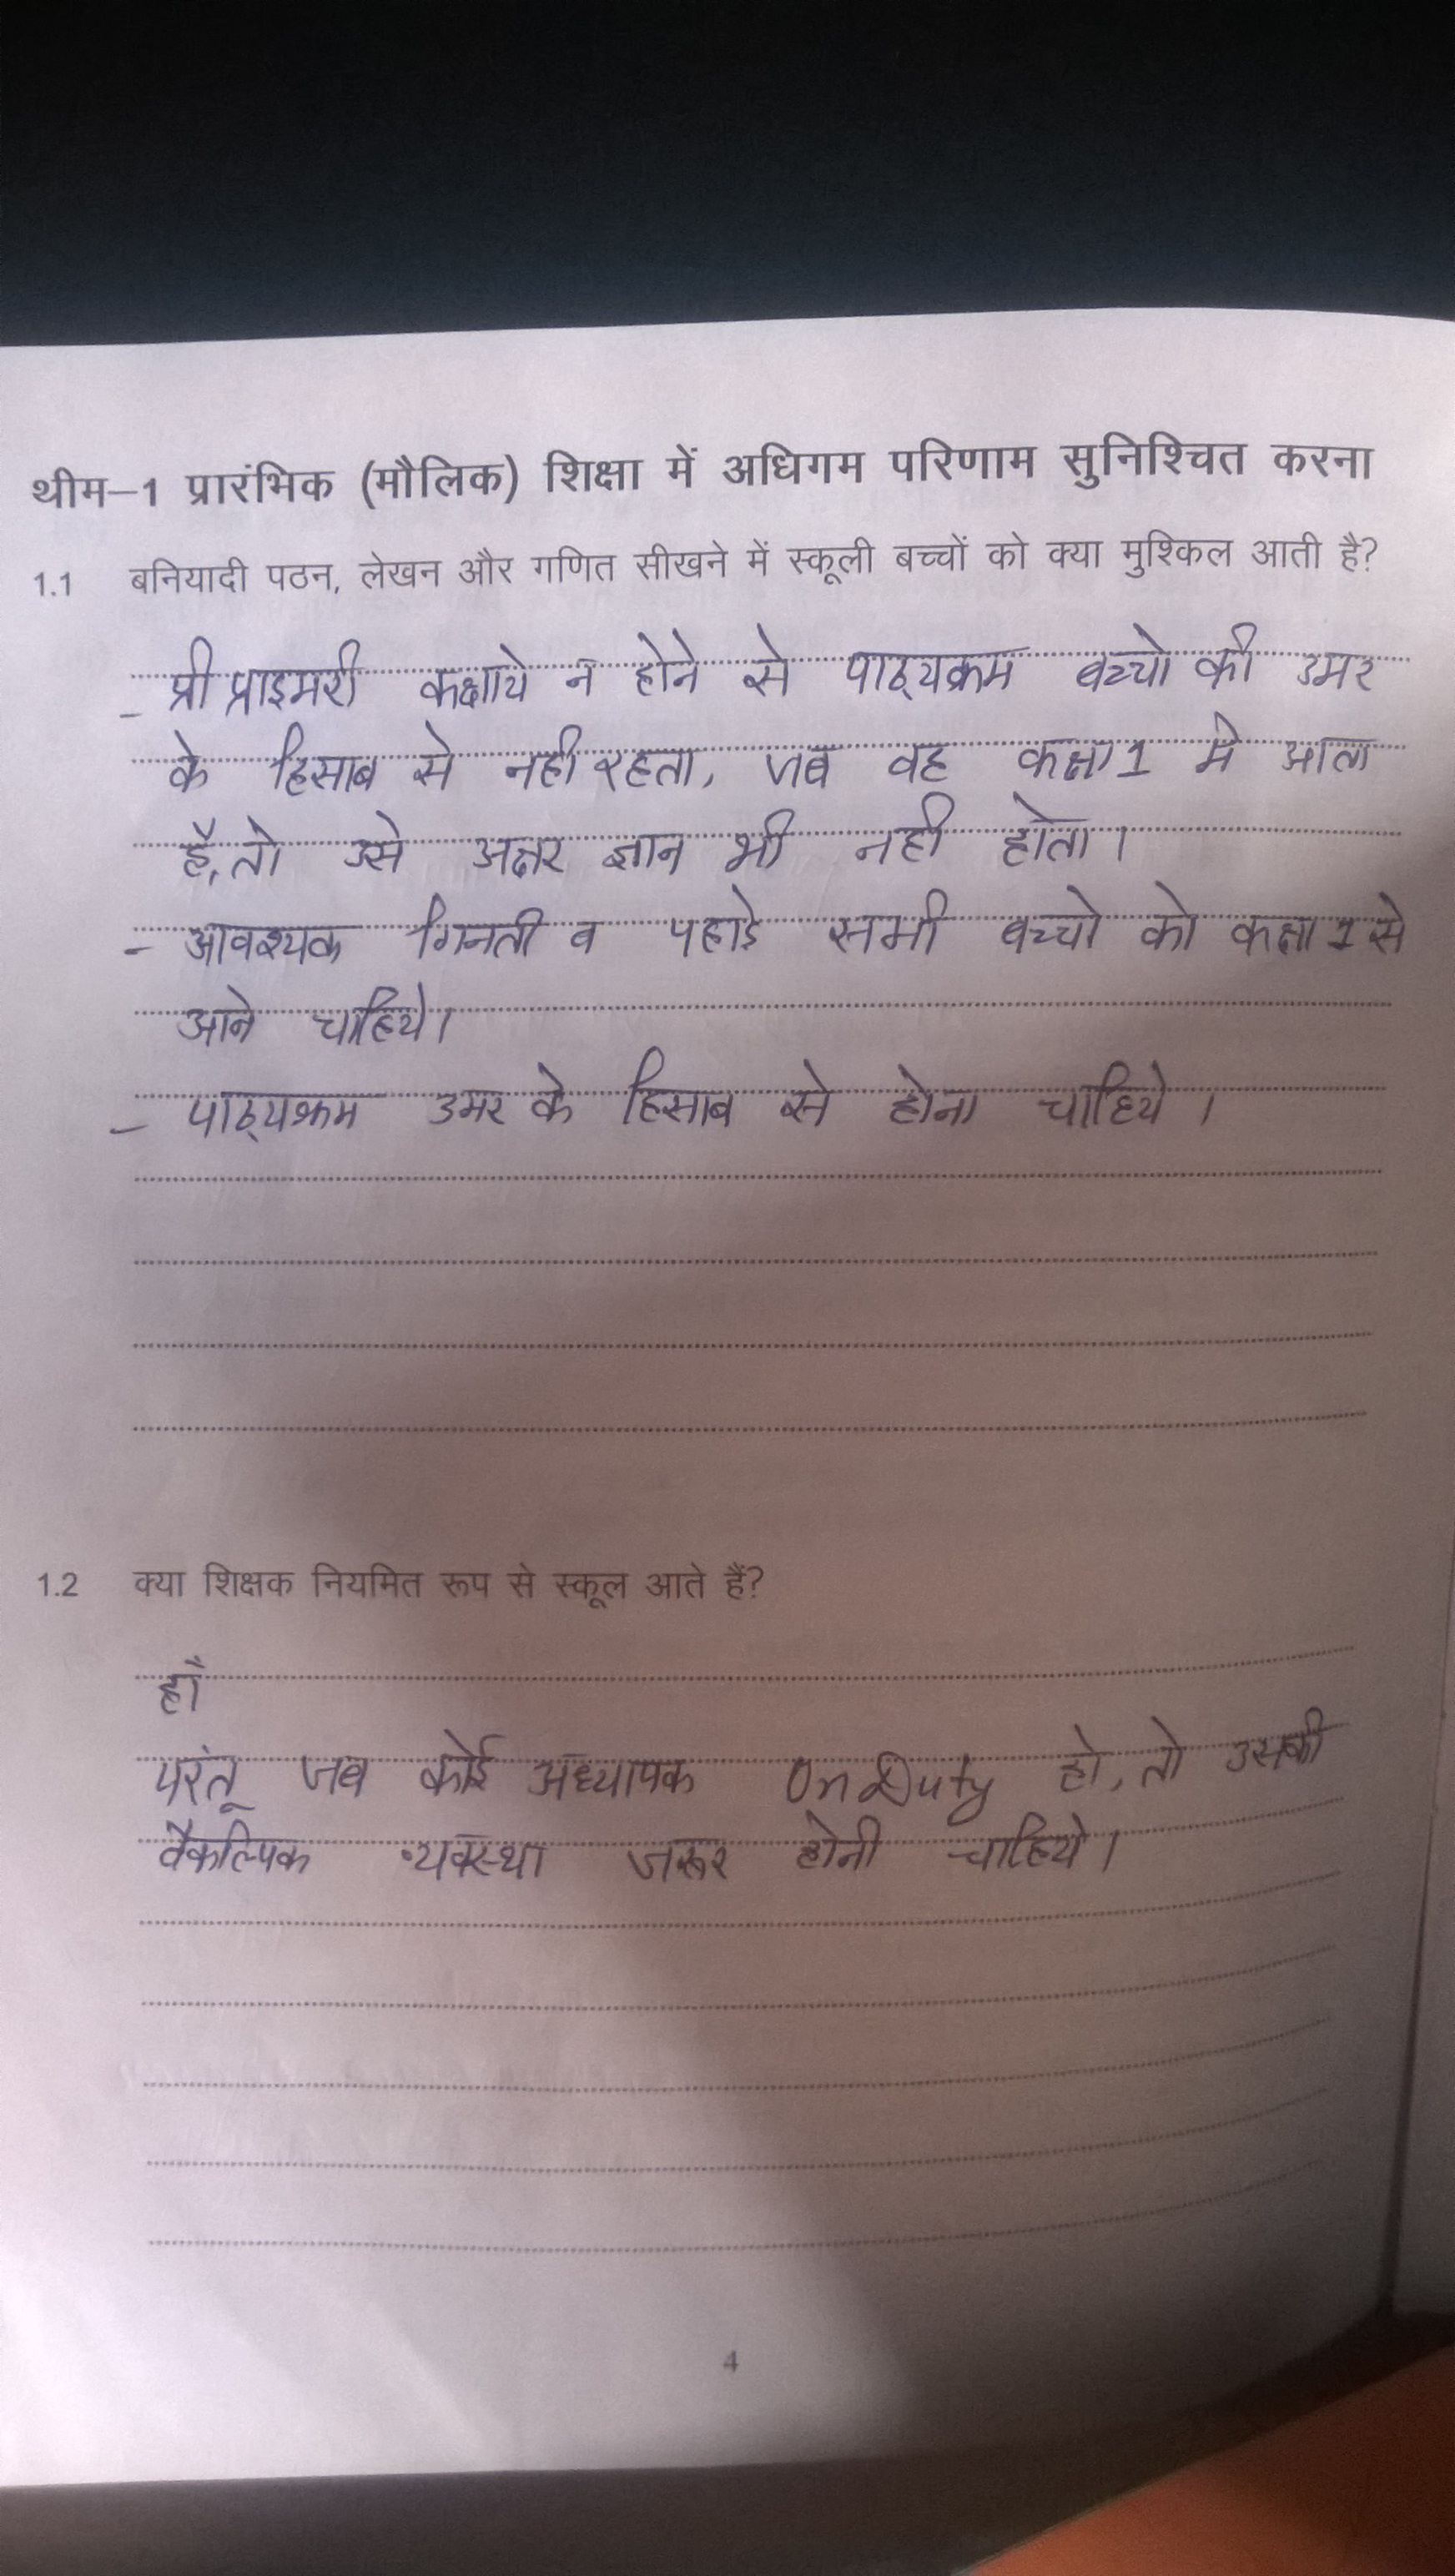 थीम–1 प्रारंभिक (मौलिक) शिक्षा में अधिगम परिणाम सुनिश्चित करना
1.1 बनियादी पठन, लेखन और गणित सीखने में स्कूली बच्चों को क्या मुश्किल आती है?
- प्री प्राइमरी कक्षाये न होने से पाठ्यक्रम बच्चो की उमर
के हिसाब से नही रहता, जब वह कक्षा 1 मे आता
है, तो उसे अक्षर ज्ञान भी नही होता।
- आवश्यक गिनती व पहाडे सभी बच्चो को कक्षा 1 से
आने चाहिये।
- पाठ्यक्रम उमर के हिसाब से होना चाहिये।
1.2 क्या शिक्षक नियमित रूप से स्कूल आते हैं?
हाँ
परंतू जब कोई अध्यापक On Duty हो, तो उसकी
वैकल्पिक व्यवस्था जरूर होनी चाहिये।
4